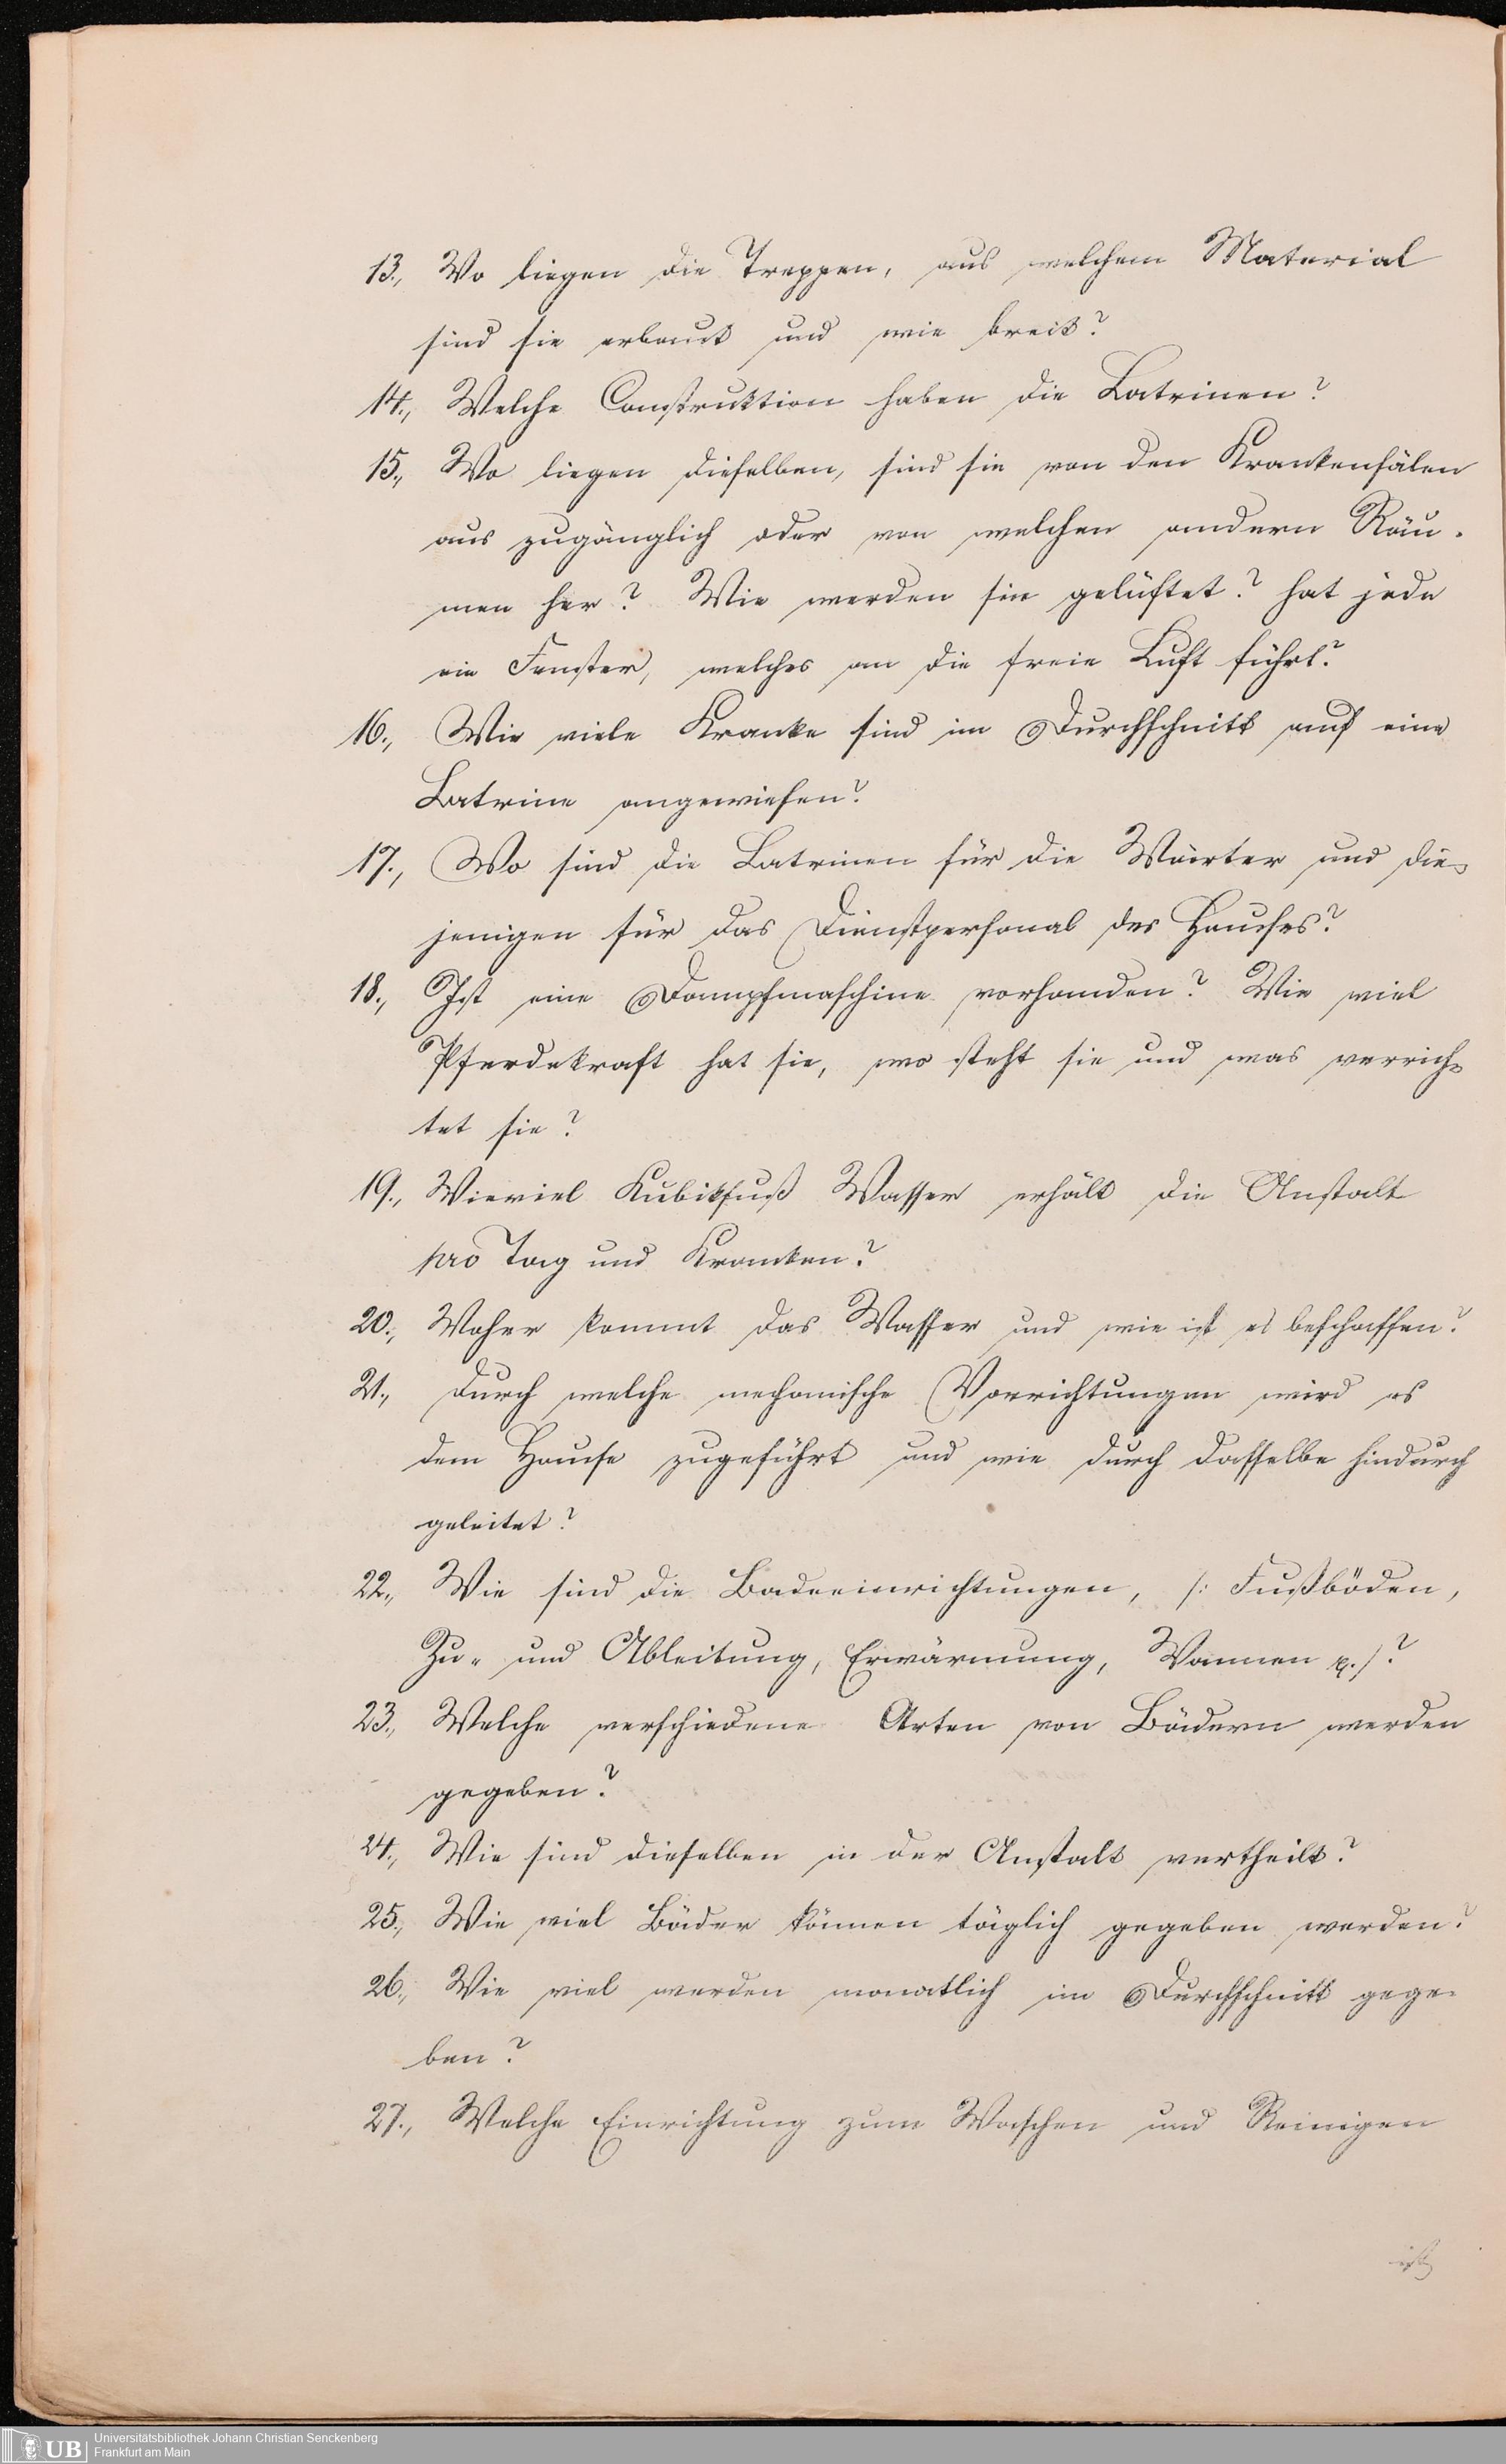 13., Wo liegen die Treppen, aus welchem Material
sind sie erbaut und wie breit?
14., Welche Construktion haben die Latrinen?
15., Wo liegen dieselben, sind sie von den Krankensälen
aus zugänglich oder von welchen andern Räu-
men her? Wie werden sie gelüftet? hat jede
ein Fenster, welches an die freie Luft führt?
16., Wie viele Kranke sind im Durchschnitt auf eine
Latrine angewiesen?
17., Wo sind die Latrinen für die Wärter und die-
jenigen für das Dienstpersonal des Hauses?
18., Ist eine Dampfmaschine vorhanden? Wie viel
Pferdekraft hat sie, wo steht sie und was verrich-
tet sie?
19., Wieviel Kubikfuß Wasser erhält die Anstalt
pro Tag und Kranken?
20., Woher kommt das Wasser und wie ist es beschaffen?
21., durch welche mechanische Vorrichtungen wird es
dem Hause zugeführt und wie durch dasselbe hindurch
geleitet?
22., Wie sind die Badeeinrichtungen, /: Fußböden,
Zu- und Ableitung, Erwärmung, Wannen p. /?
23., Welche verschiedene Arten von Bädern werden
gegeben?
24., Wie sind dieselben in der Anstalt vertheilt?
25., Wie viel Bäder können täglich gegeben werden?
26., Wie viel werden monatlich im Durchschnitt gege-
ben?
27., Welche Einrichtung zum Waschen und Reinigen
ist
UB
Universitätsbibliothek Johann Christian Senckenberg
Frankfurt am Main